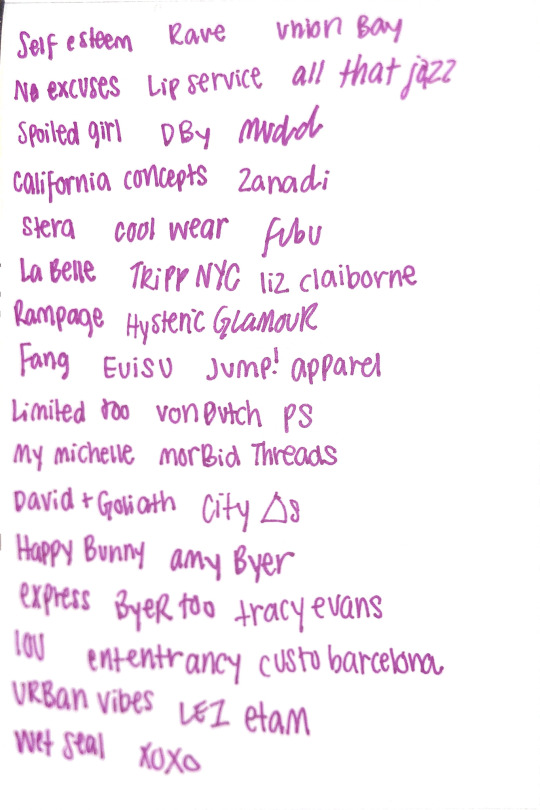 Self esteem Rave Union Bay
No excuses Lip service all that jazz
Spoiled girl DBY mudd
California concepts Zanadi
Stera cool wear fubu
La Belle TRiPP NYC liz claiborne
Rampage Hysteric GLaMOUR
Fang EVISU Jump! apparel
Limited too von Dutch PS
My michelle morBid Threads
David + Goliath City △s
Happy Bunny amy Byer
express ByeR too tracy evans
IOU ententrancy custo barcelona
URBan vibes LEI etam
wet seal XOXO